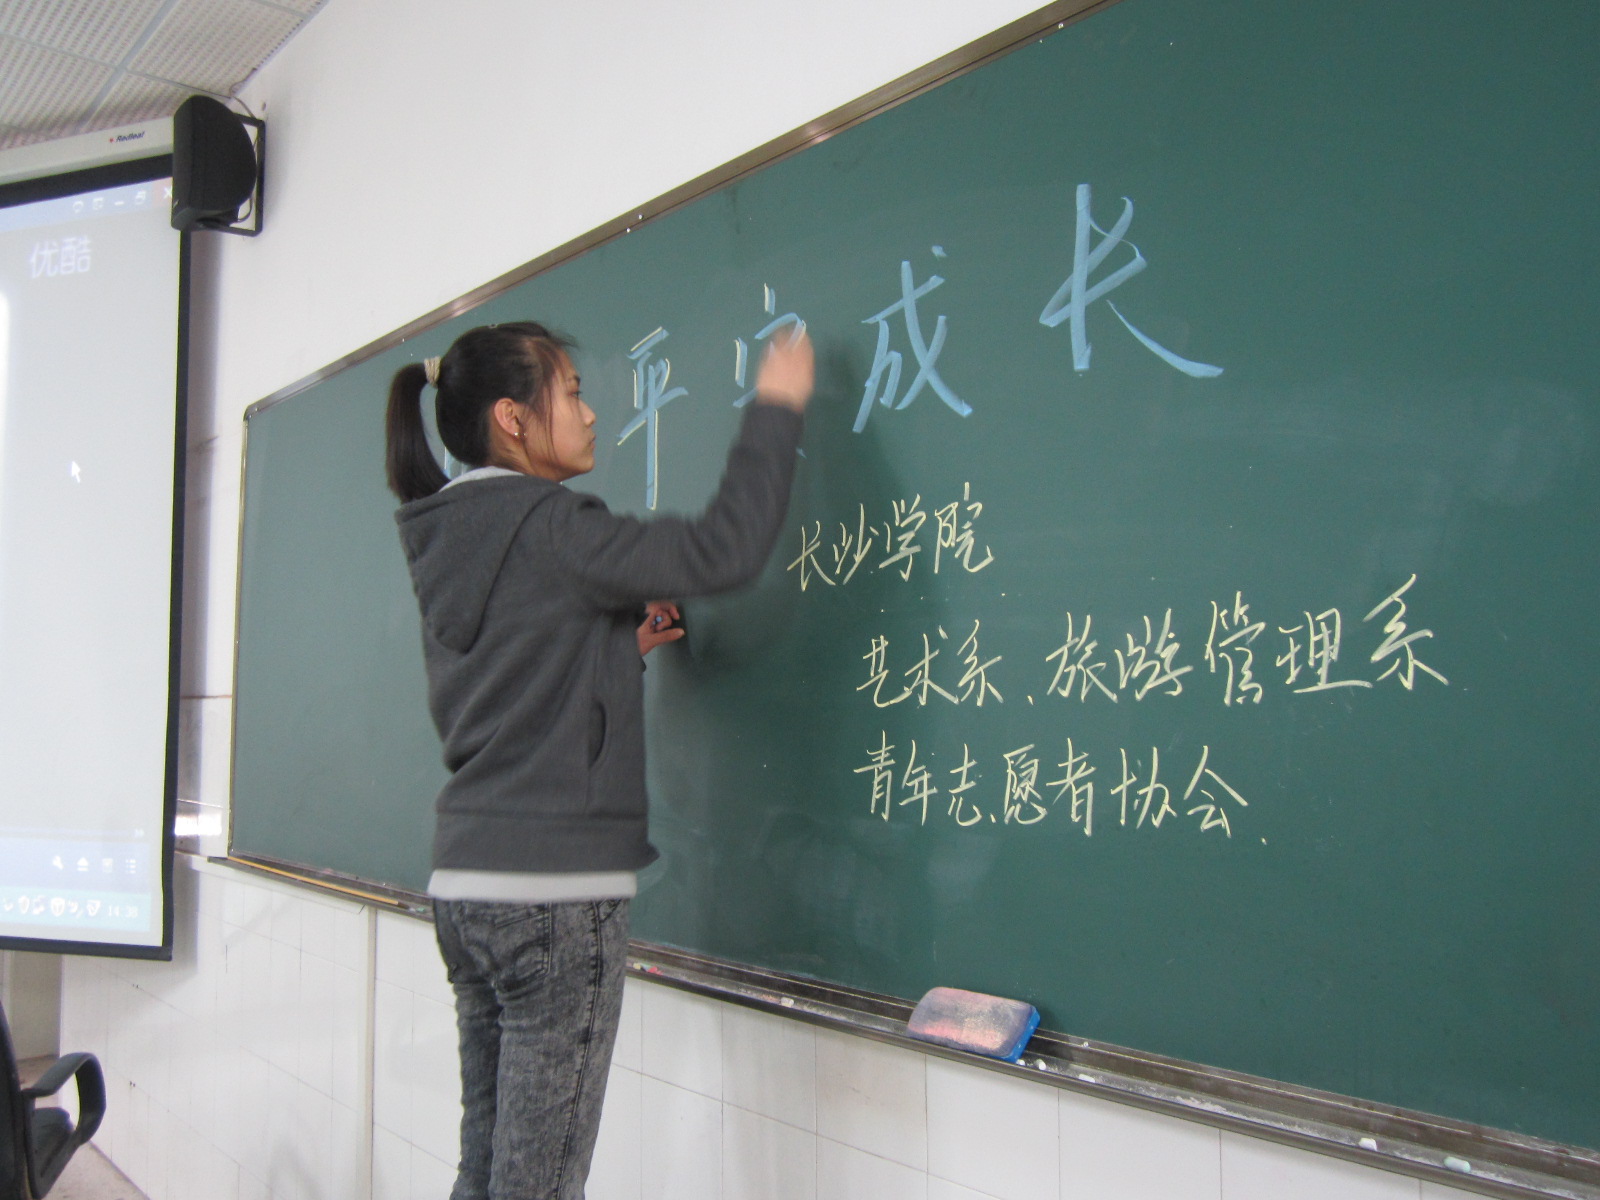 Redleaf
优酷
平安成长
长沙学院
艺术系、旅游管理系
青年志愿者协会.
14:38